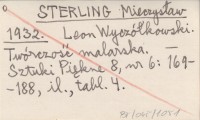 STERLING Mieczysław
1932. Leon Wyczółkowski.
Twórczość malarska. —
Sztuki Piękne 8, nr 6: 169-
-188, il., tabl. 4.